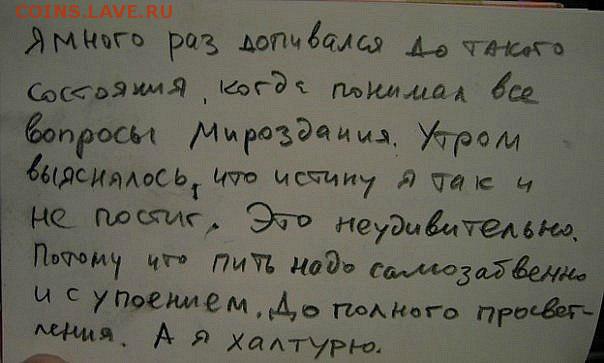 COINS.LAVE.RU
Я много раз допивался до такого
состояния, когда понимал все
вопросы Мироздания. Утром
выяснялось, что истину я так и
не постиг. Это неудивительно.
Потому что пить надо самозабвенно
и с упоением. До полного просвет-
ления. А я халтурю.